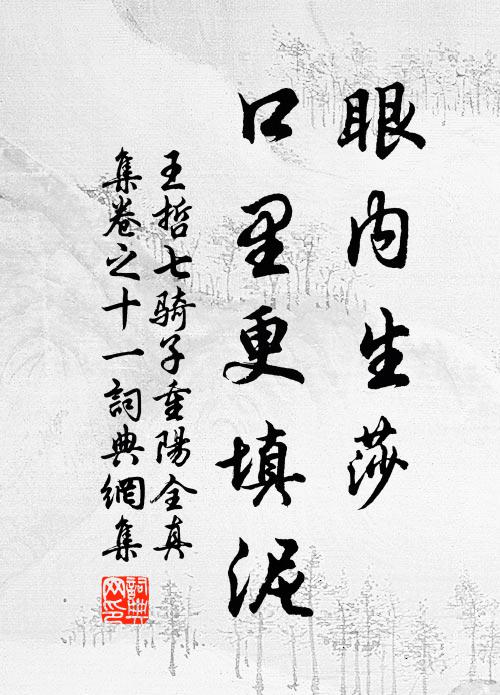 眼内生莎
口里更填泥
王哲七骑子重陽全真
集卷之十一詞典網集